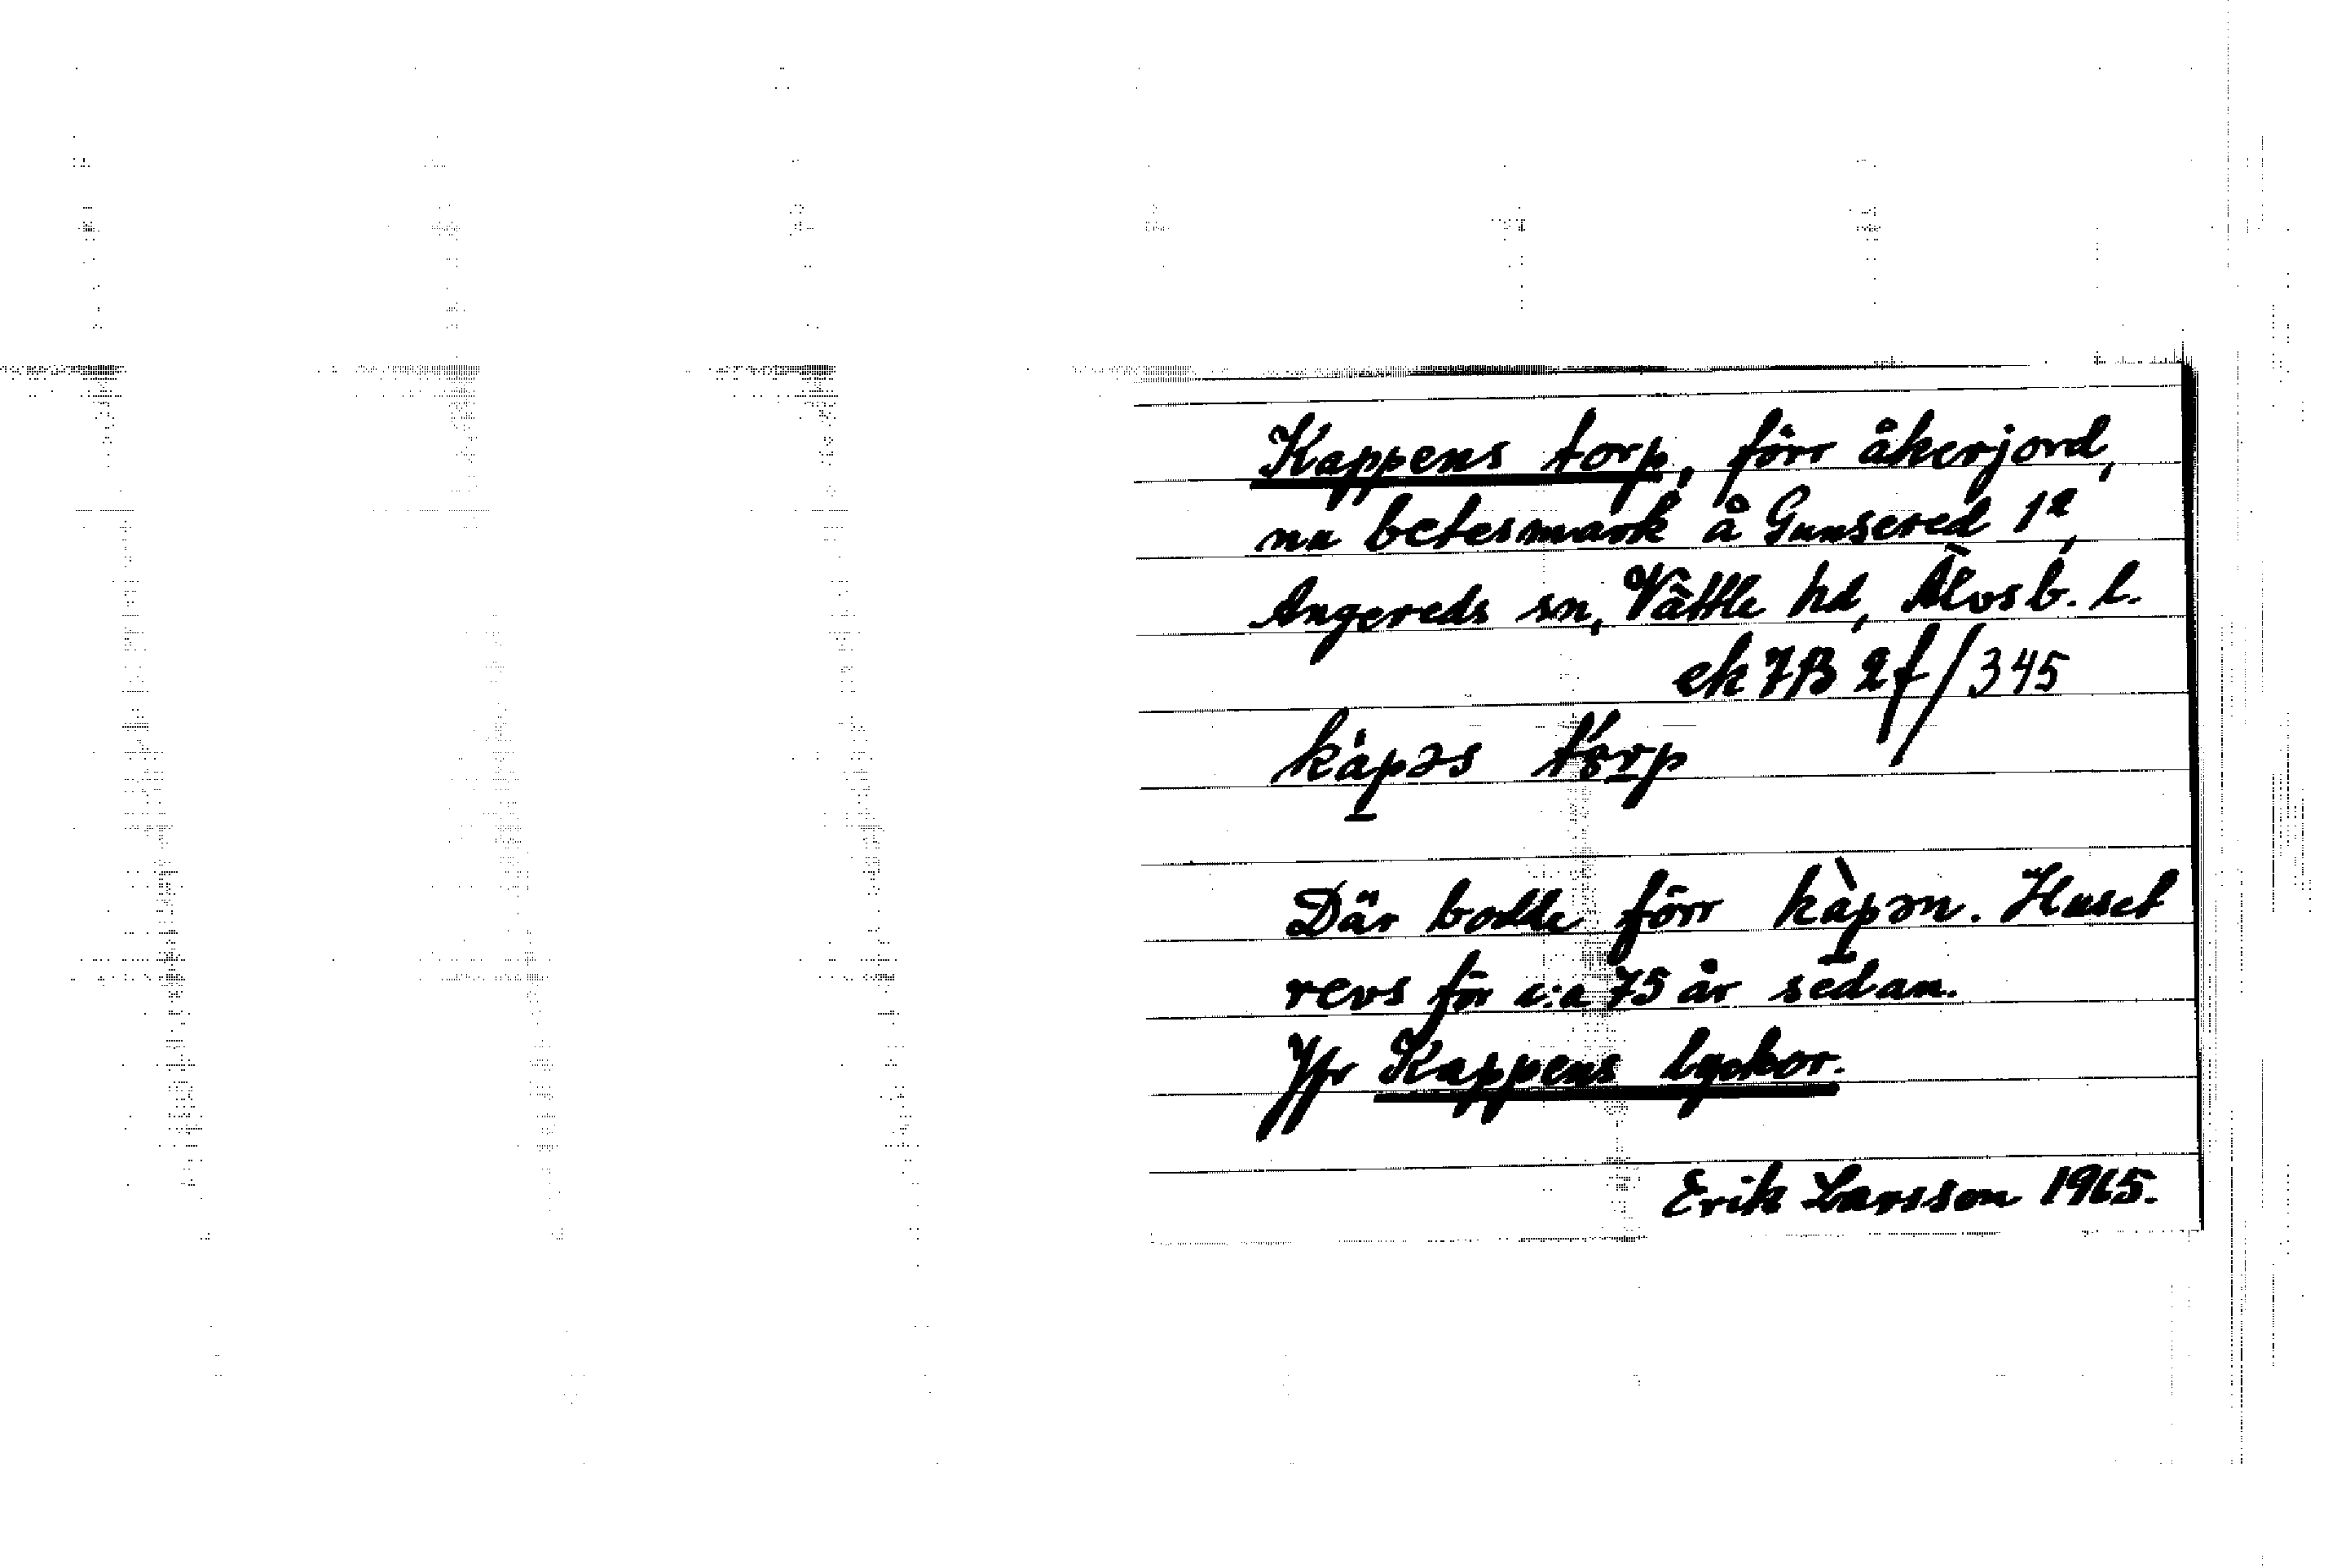 Kappens torp, förr åkerjord,
nu betesmark å Gunsered 1²,
Angereds sn, Vättle hd, Älvsb. l.
ek 7B 2f/345
kàpəs tɷ́rp
Där bodde förr kàpən. Huset
revs för c:a 75 år sedan.
Jfr Kappens lyckor.
Erik Larsson 1965.